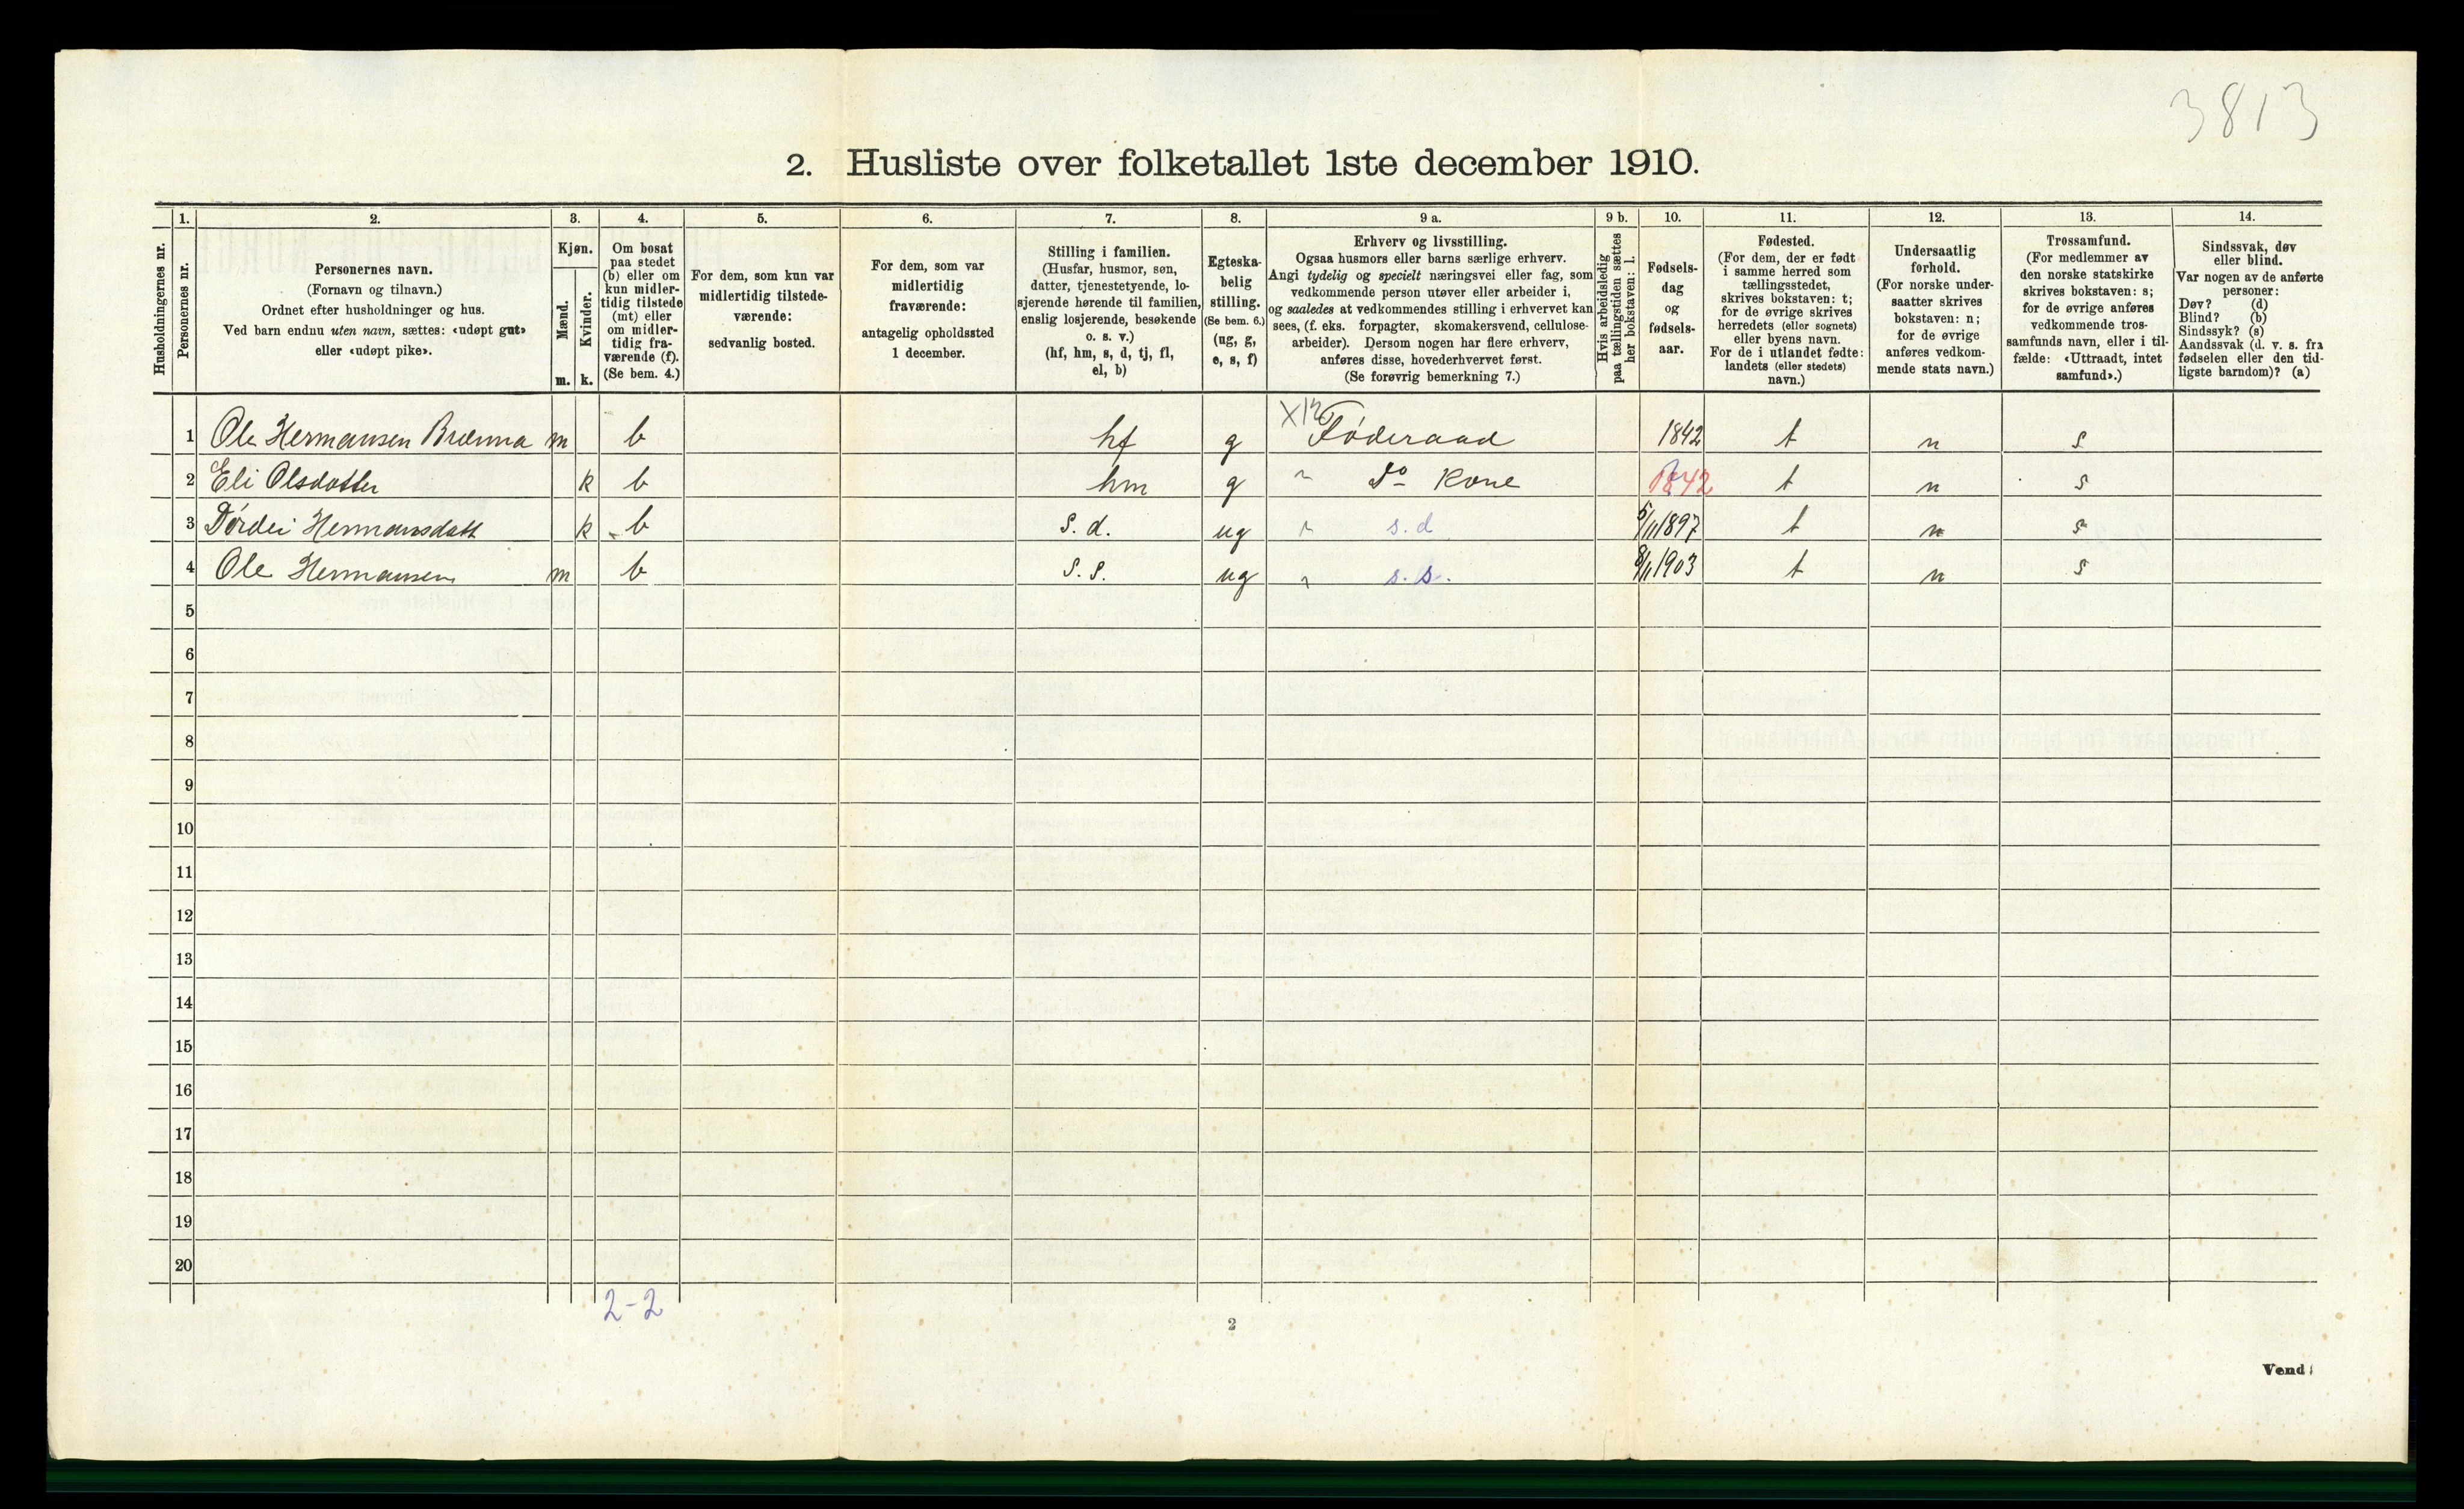 3813
2. Husliste over folketallet 1ste december 1910.
Husholdningernes nr.
1.
Personernes nr.
2.
Personernes navn.
(Fornavn og tilnavn.)
Ordnet efter husholdninger og hus.
Ved barn endnu uten navn, sættes: «udøpt gut»
eller «udøpt pike».
3.
Kjøn.
Mænd.
m.
Kvinder.
k.
4.
Om bosat
paa stedet
(b) eller om
kun midler-
tidig tilstede
(mt) eller
om midler-
tidig fra-
værende (f).
(Se bem. 4.)
5.
For dem, som kun var
midlertidig tilstede-
værende:
sedvanlig bosted.
6.
For dem, som var
midlertidig
fraværende:
antagelig opholdssted
1 december.
7.
Stilling i familien.
(Husfar, husmor, søn,
datter, tjenestetyende, lo-
sjerende hørende til familien,
enslig losjerende, besøkende
o. s. v.)
(hf, hm, s, d, tj, fl,
el, b)
8.
Egteska-
belig
stilling.
(Se bem. 6.)
(ug, g,
e, s, f)
9 a.
Erhverv og livsstilling.
Ogsaa husmors eller barns særlige erhverv.
Angi tydelig og specielt næringsvei eller fag, som
vedkommende person utøver eller arbeider i,
og saaledes at vedkommendes stilling i erhvervet kan
sees, (f. eks. forpagter, skomakersvend, cellulose-
arbeider). Dersom nogen har flere erhverv,
anføres disse, hovederhvervet først.
(Se forøvrig bemerkning 7.)
9 b.
Hvis arbeidsledig
paa tællingstiden sættes
her bokstaven: l.
10.
Fødsels-
dag
og
fødsels-
aar.
11.
Fødested.
(For dem, der er født
i samme herred som
tællingsstedet,
skrives bokstaven: t;
for de øvrige skrives
herredets (eller sognets)
eller byens navn.
For de i utlandet fødte:
landets (eller stedets)
navn.)
12.
Undersaatlig
forhold.
(For norske under-
saatter skrives
bokstaven: n;
for de øvrige
anføres vedkom-
mende stats navn.)
13.
Trossamfund.
(For medlemmer av
den norske statskirke
skrives bokstaven: s;
for de øvrige anføres
vedkommende tros-
samfunds navn, eller i til-
fælde: «Uttraadt, intet
samfund».)
14.
Sindssvak, døv
eller blind.
Var nogen av de anførte
personer:
Døv? (d)
Blind? (b)
Sindssyk? (s)
Aandssvak (d. v. s. fra
fødselen eller den tid-
ligste barndom)? (a)
1 Ole Hermansen Brænna m b hf g X12 Føderaad 1842 t n s
2 Eli Olsdatter k b hm g " Do Kone 1842 t n s
3 Dørdei Hermansdatt k b s. d. ug " s. d 5/11 1897 t n s
4 Ole Hermansen m b s. s. ug " s. s. 8/11 1903 t n s
5
6
7
8
9
10
11
12
13
14
15
16
17
18
19
20
2-2
2
Vend!